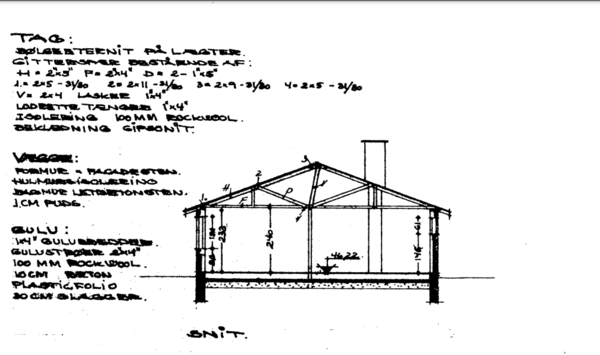 TAG:
BØLGEETERNIT PÅ LÆGTER.
GITTERSPÆR BESTÅENDE AF:
H = 2"x5" F = 2"x4" D = 2 - 1"x5"
1 = 2x5 - 31/80 2 = 2x11 - 31/80 3 = 2x9 - 31/80 4 = 2x5 - 31/80
V = 2x4 LASKER 1"x4"
LODRETTE TÆNGER 1"x4"
ISOLERING 100 MM ROCKWOOL.
BEKLÆDNING GIPSONIT.
VÆGGE:
FORMUR = FACADESTEN.
HULMURSISOLERING
BAGMUR LETBETONSTEN.
1 CM PUDS.
GULV:
1x4" GULVBRÆDDER.
GULVSTRØER 2"x4"
100 MM ROCKWOOL.
10 CM BETON
PLASTICFOLIO
20 CM SLAGGER.
3
2
H
V
D
1
F
4
233
240
46,22
61
146
SNIT.